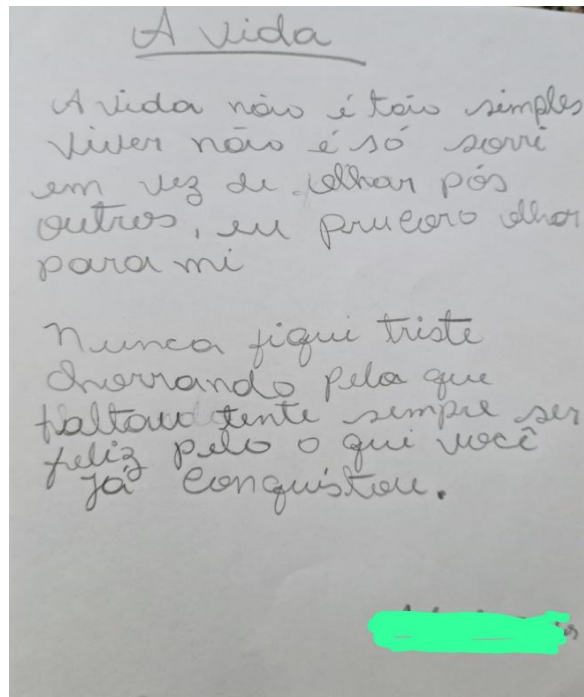 A vida
A vida não é tão simples
viver não é só sorri
em vez de olhar pós
outros, eu prucoro olhar
para mi
Nunca fiqui triste
chorrando pela que
faltou tente sempre ser
feliz pelo o qui você
já conquistou.